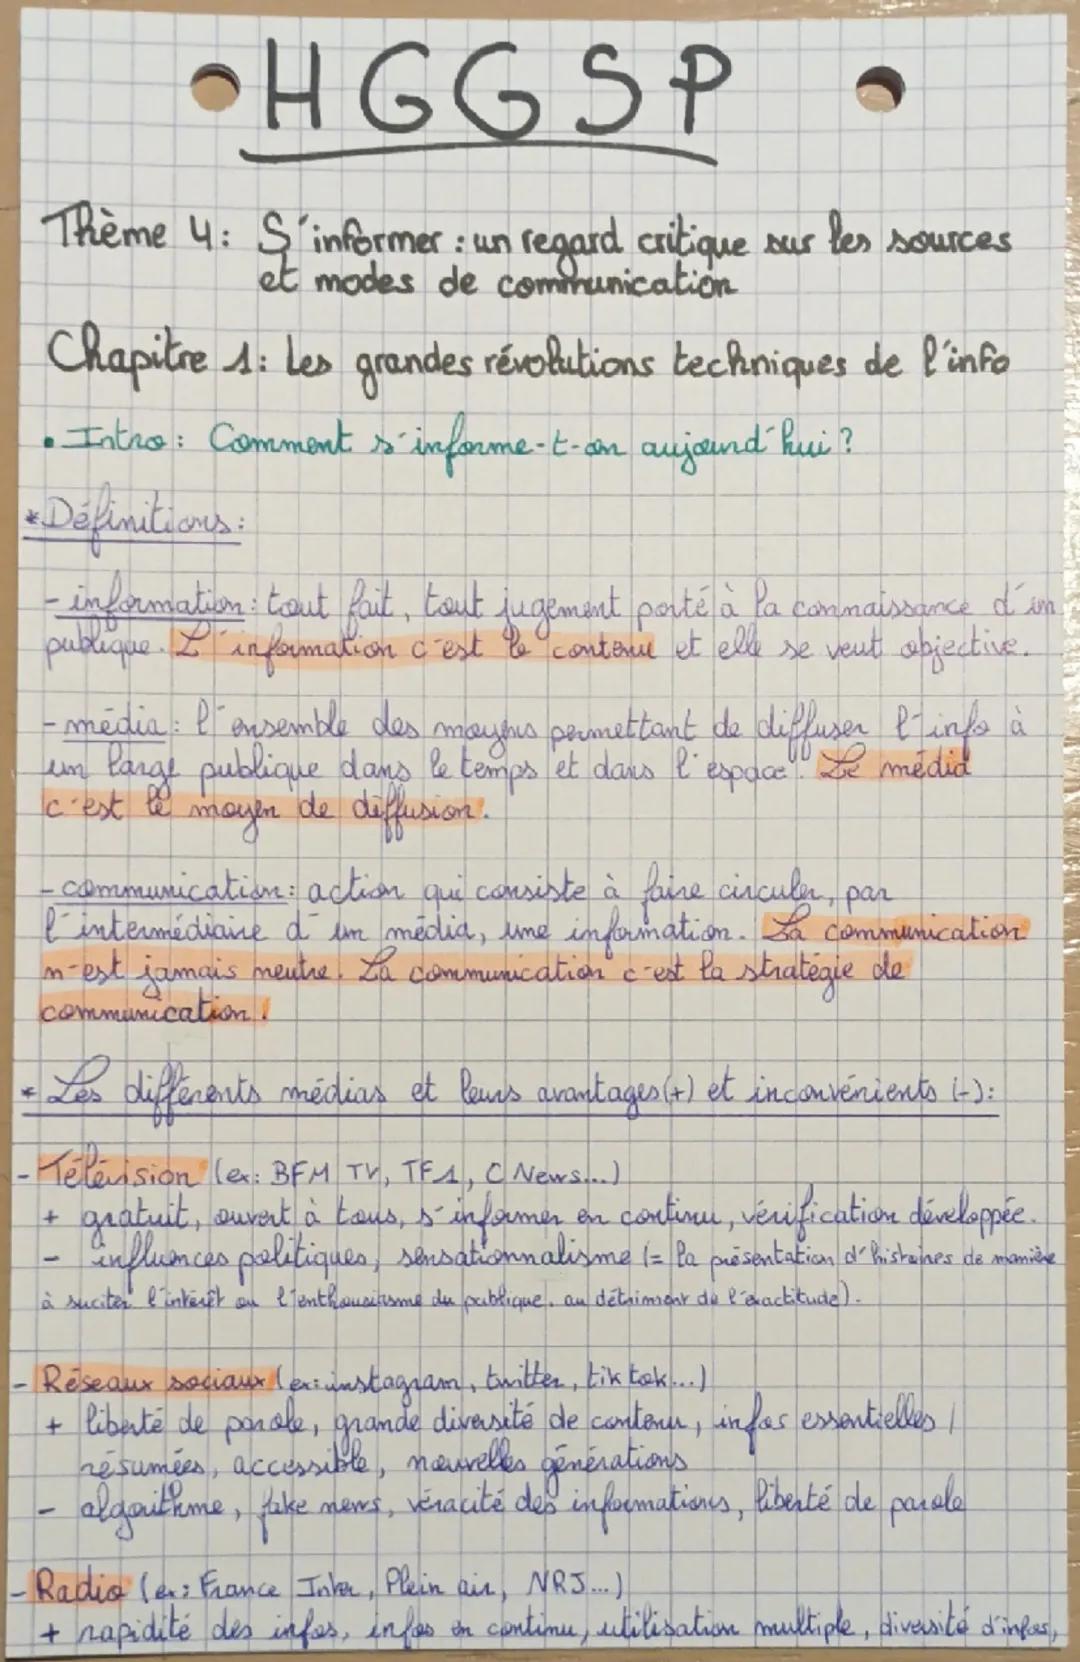 • HGGSP
Thème 4: S'informer : un regard critique sur les sources
et modes de communication
Chapitre 1: Les grandes révolutions techniques de l'info
• Intro : Comment s'informe-t-on aujourd'hui ?
* Définitions :
- information : tout fait, tout jugement porté à la connaissance d'un
publique. L'information c'est le contenu et elle se veut objective.
- média : l'ensemble des moyens permettant de diffuser l'info à
un large publique dans le temps et dans l'espace. Le média
c'est le moyen de diffusion.
- communication : action qui consiste à faire circuler, par
l'intermédiaire d'un média, une information. La communication
n'est jamais neutre. La communication c'est la stratégie de
communication.
* Les différents médias et leurs avantages (+) et inconvénients (-) :
- Télévision (ex: BFM TV, TF1, C News...)
+ gratuit, ouvert à tous, s'informer en continu, vérification développée.
- influences politiques, sensationnalisme (= la présentation d'histoires de manière
à suciter l'intérêt ou l'enthousiasme du publique, au détriment de l'exactitude).
- Réseaux sociaux (ex: instagram, twitter, tik tok...)
+ liberté de parole, grande diversité de contenu, infos essentielles /
résumées, accessible, nouvelles générations
- algorithme, fake news, véracité des informations, liberté de parole
- Radio (ex: France Inter, Plein air, NRJ...)
+ rapidité des infos, infos en continu, utilisation multiple, diversité d'infos,